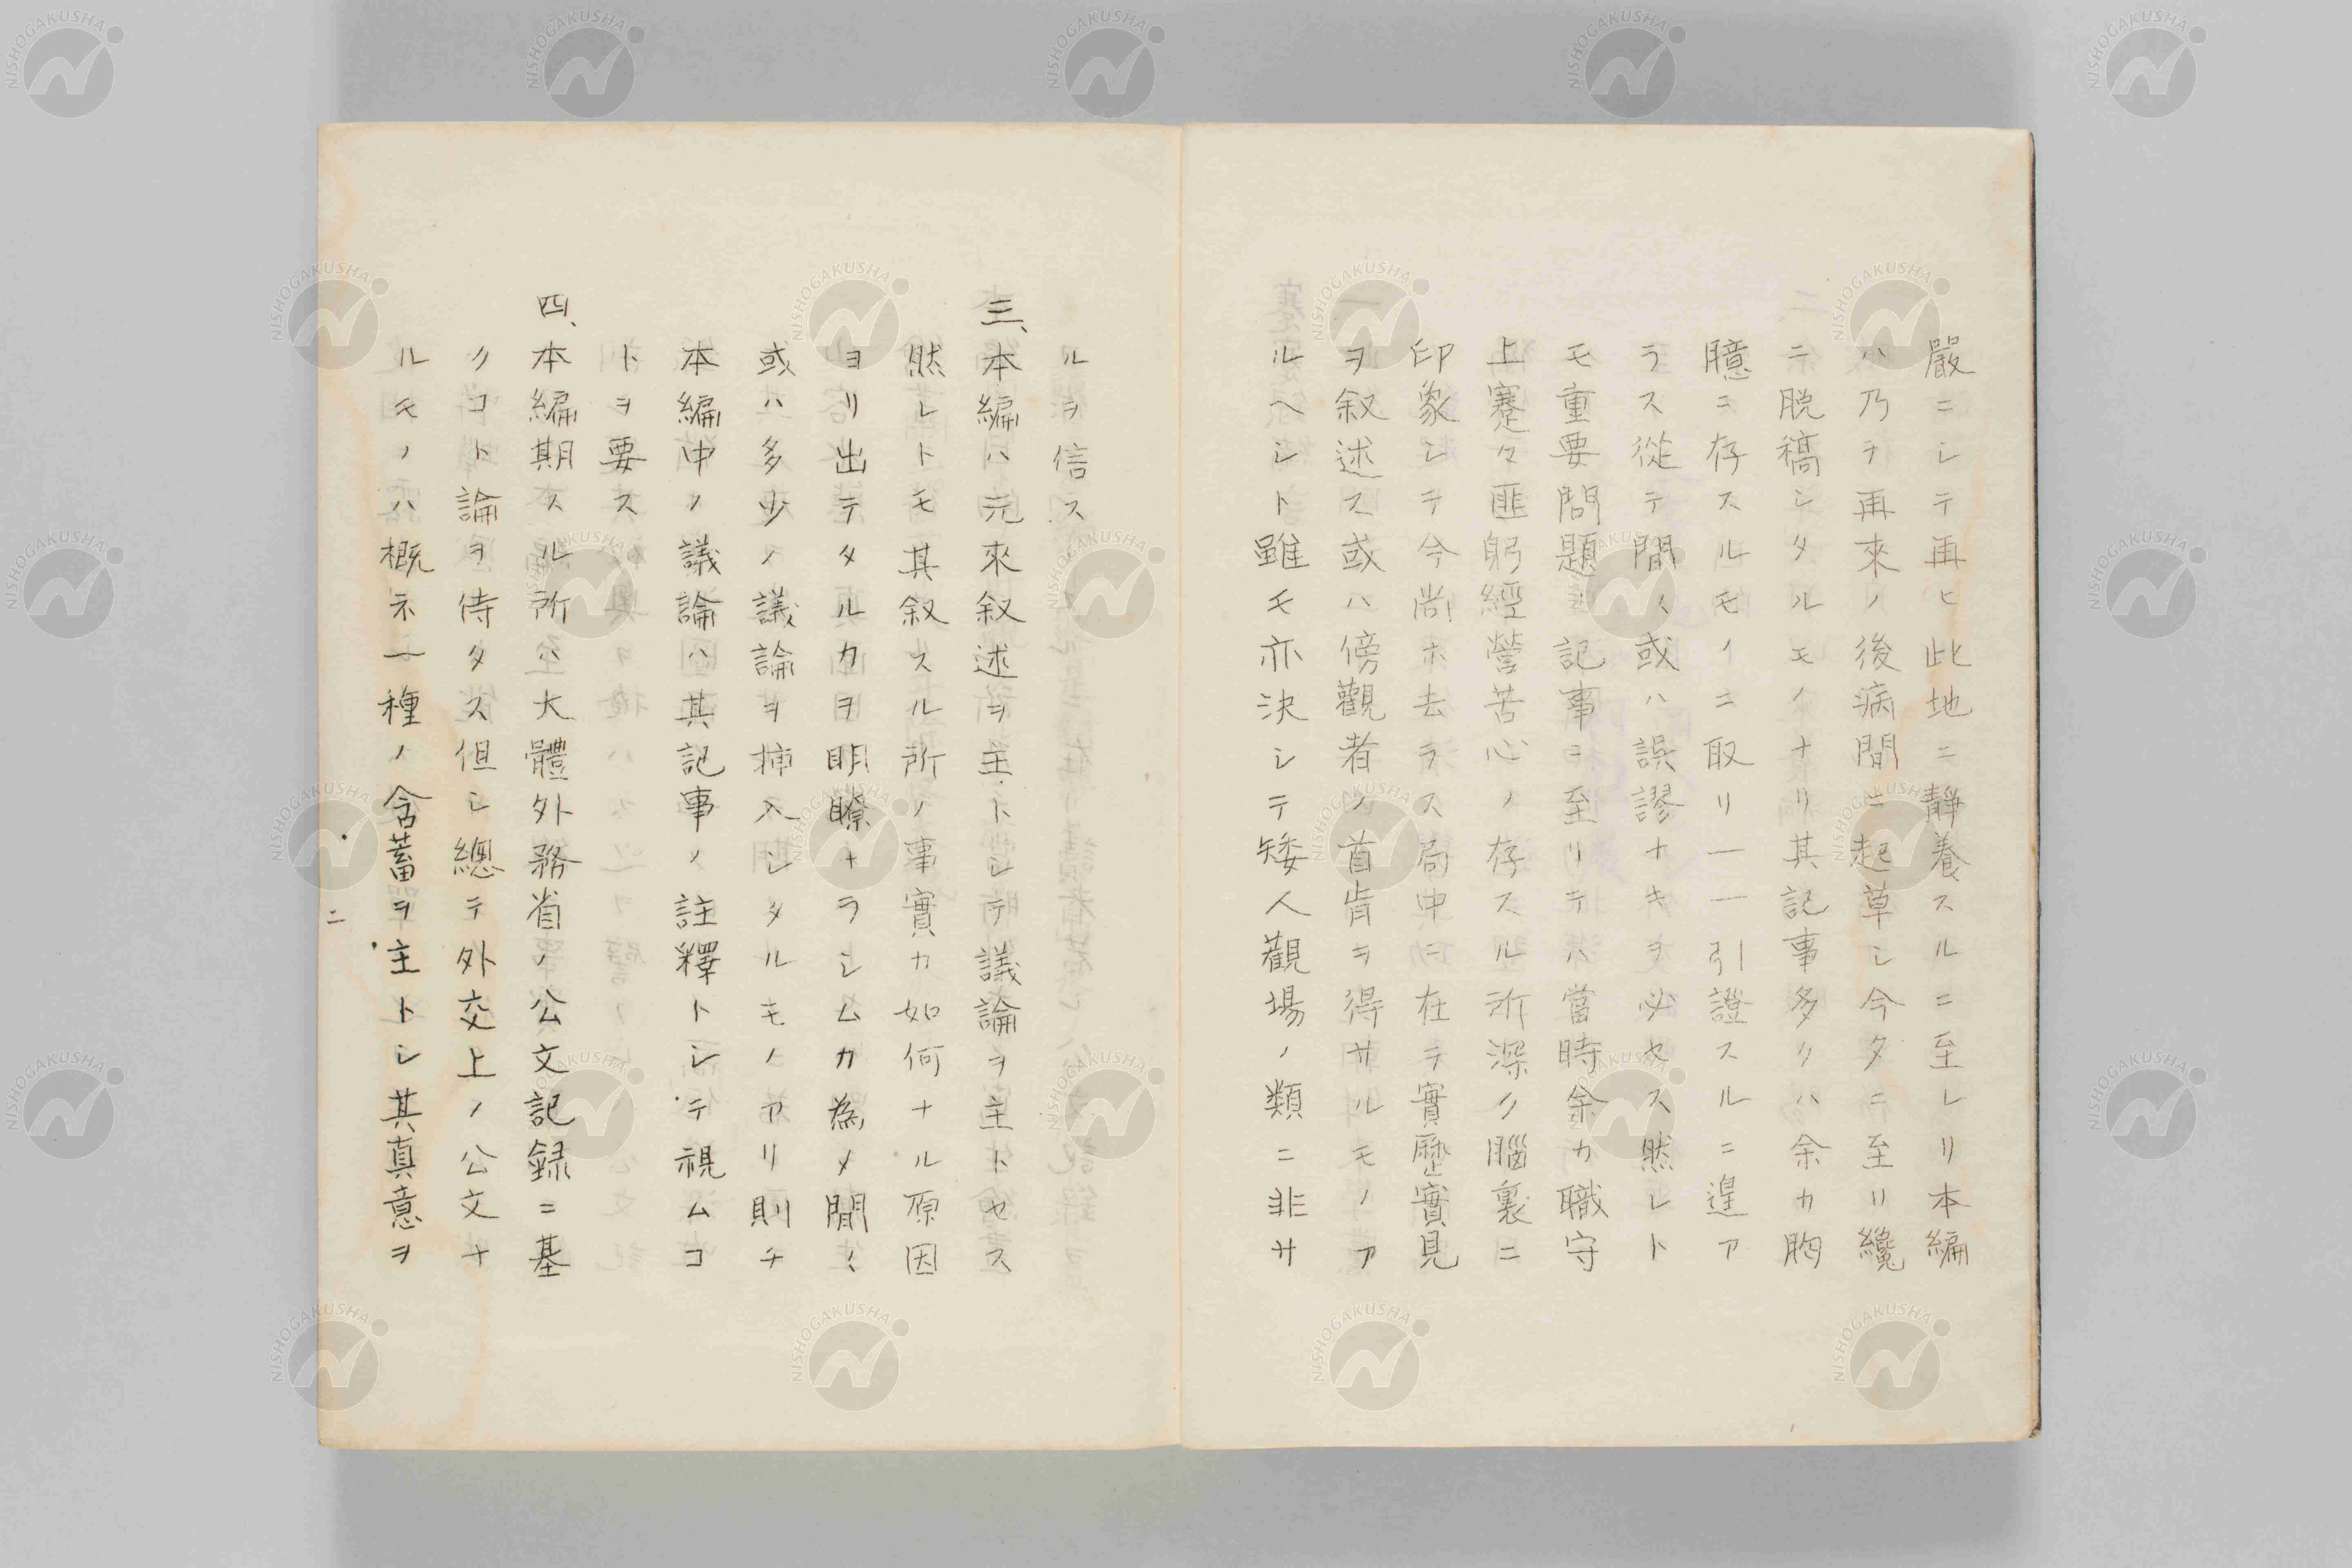 嚴ニシテ再ヒ此地ニ靜養スルニ至レリ本編
ハ乃ヲ再來ノ後病間ニ起草シ今夕ニ至リ纔
ニ脱稿シタルモノナリ其記事多クハ余カ胸
臆ニ存スルモノニ取リ一一引證スルニ遑ア
ラス從テ間〻或ハ誤謬ナキヲ必セス然レト
モ重要問題ノ記事ニ至リテハ當時余カ職守
上蹇々匪躬經營苦心ノ存スル所深ク腦裏ニ
印象シテ今尚ホ去ラス局中ニ在テ實歷實見
ヲ叙述ス或ハ傍觀者ノ首肯ヲ得サルモノア
ルヘシト雖モ亦決シテ矮人觀場ノ類ニ非サ
ルヲ信ス
三、本編ハ元來叙述ヲ主トシテ議論ヲ主トセス
然レトモ其叙スル所ノ事實カ如何ナル原因
ヨリ出テタルカヲ明瞭ナラシムカ為メ間〻
或ハ多少ノ議論ヲ挿入シタルモノアリ則チ
本編中ノ議論ハ其記事ノ註釋トシテ視ムコ
トヲ要ス
四、本編期スル所ハ大體外務省ノ公文記録ニ基
クコト論ヲ待タス但シ總テ外交上ノ公文ナ
ルモノハ概ネ一種ノ含蓄ヲ主トシ其真意ヲ
二
NISHOGAKUSHA